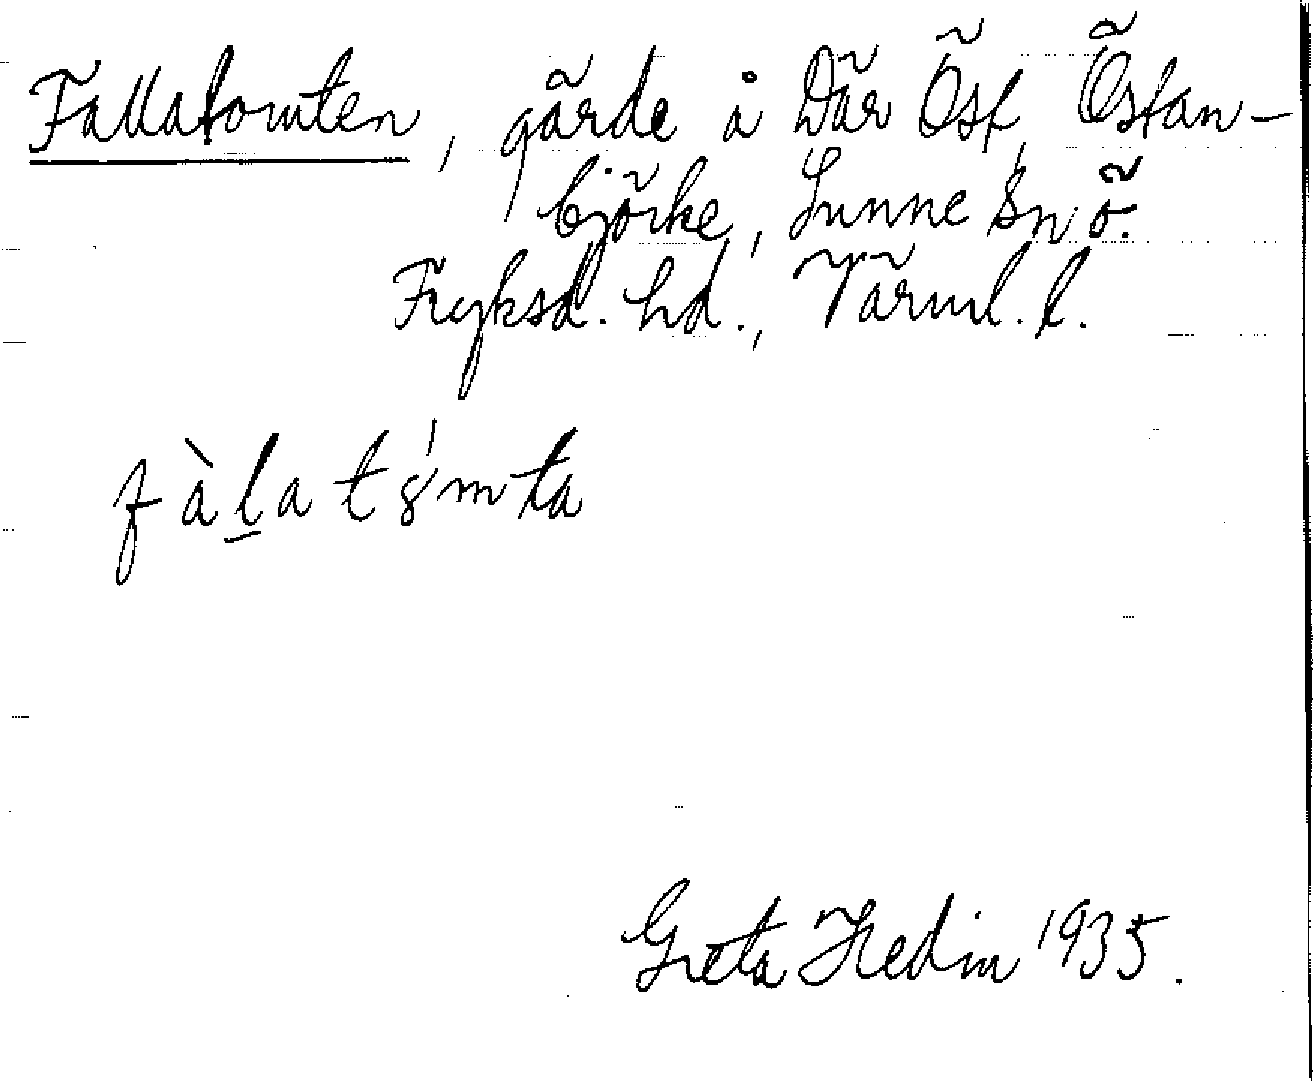 Fallatomten, gärde å Där Öst, Östan-
björke, Sunne sn ö.
Fryksd. hd., Värml. l.
fàla tómta
Greta Hedin 1935.